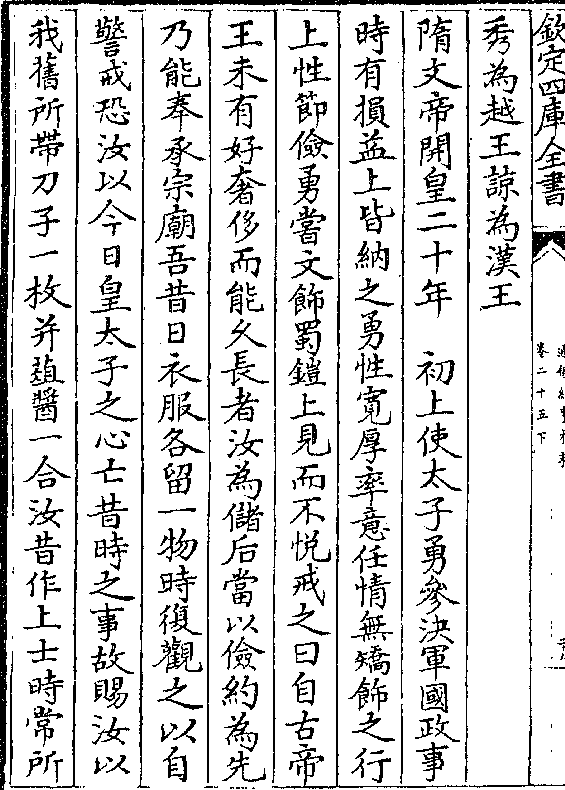 欽定四庫全書
卷二十五下
秀為越王諒為漢王
隋文帝開皇二十年　初上使太子勇參決軍國政事
時有損益上皆納之勇性寛厚率意任情無矯飾之行
上性節儉勇嘗文飾蜀鎧上見而不悦戒之曰自古帝
王未有好奢侈而能久長者汝為儲后當以儉約為先
乃能奉承宗廟吾昔日衣服各留一物時復觀之以自
警戒恐汝以今日皇太子之心亡昔時之事故賜汝以
我舊所帶刀子一枚并葅醬一合汝昔作上士時常所